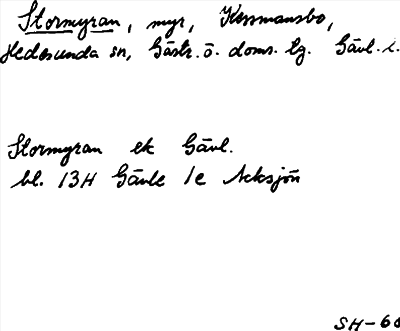 Stormyran, myr, Kersmansbo,
Hedesunda sn, Gästr. ö. doms. lg. Gävl. l.
Stormyran ek Gävl.
bl. 13H Gävle 1e Acksjön
SH-60